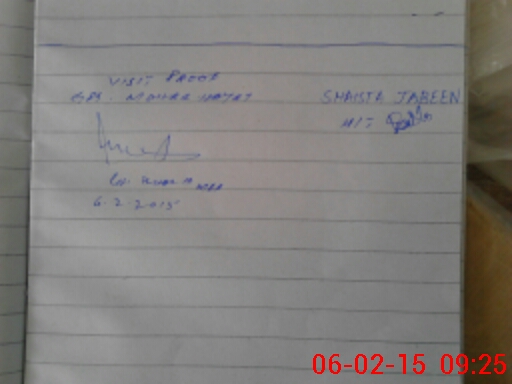 VISIT PROOF
GPS. MOHRA HAYAT
SHAISTA JABEEN
HIT
6.2.2015
06-02-15 09:25